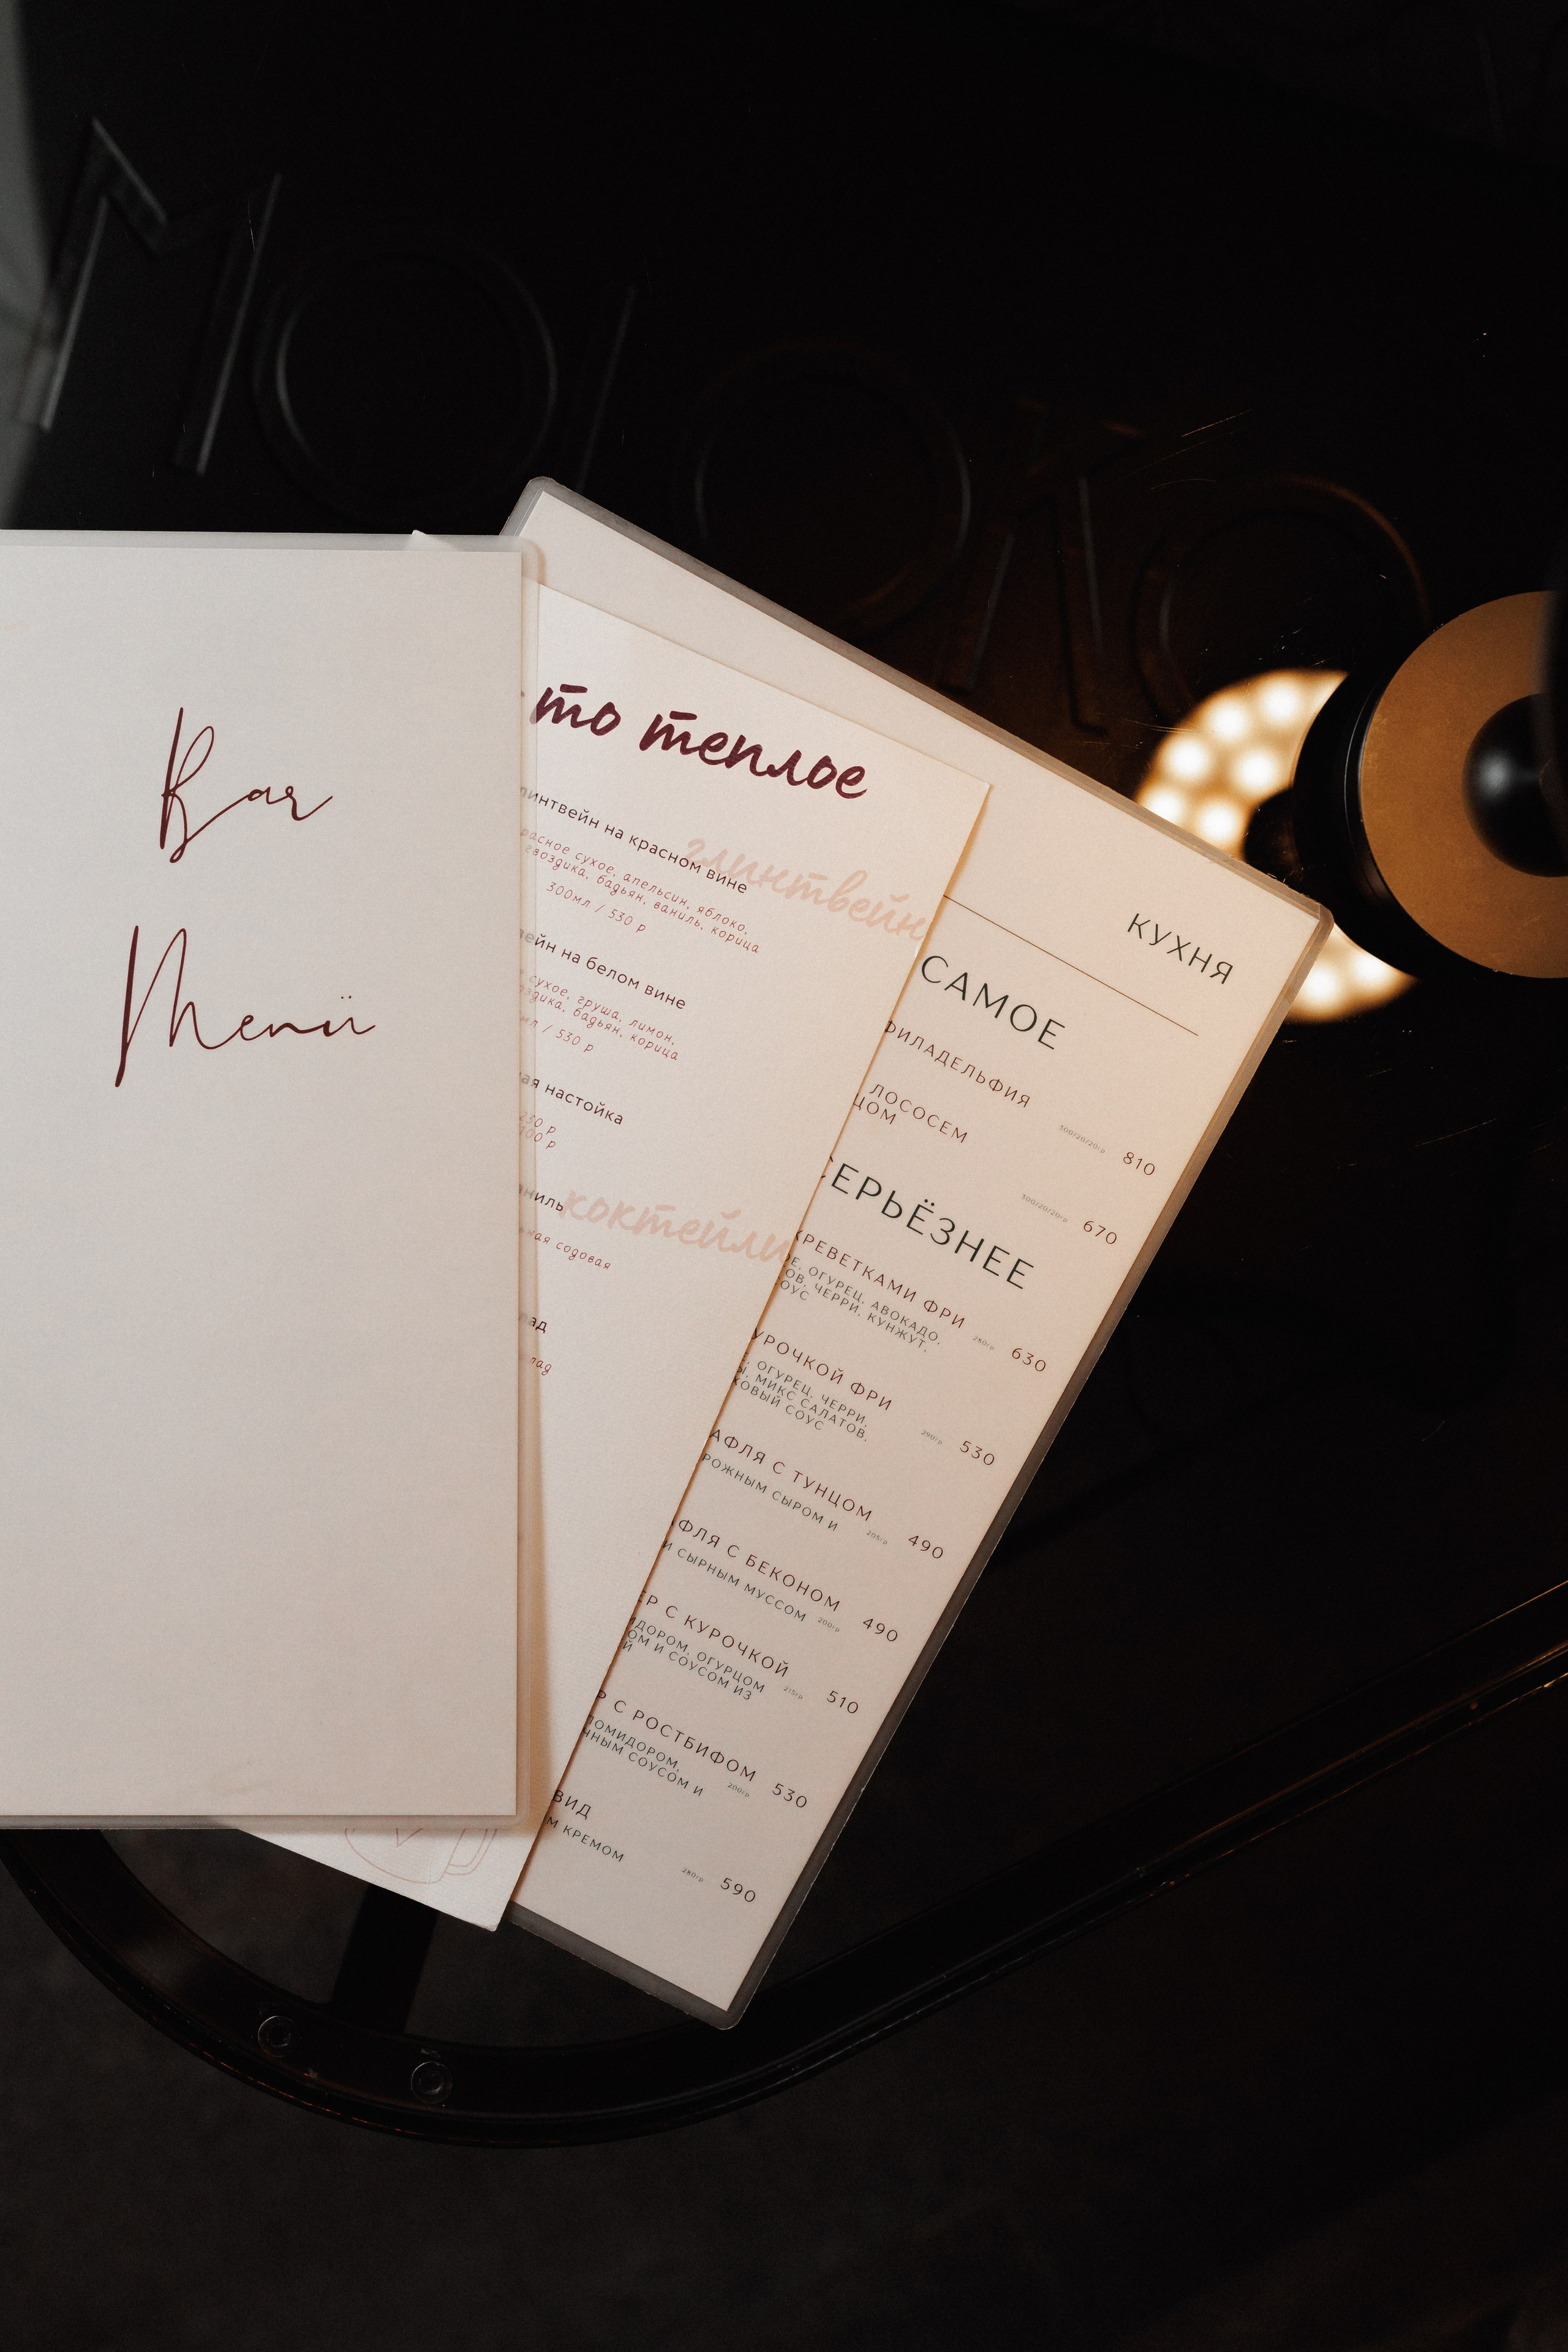 МОЛОКО
Bar
Menü
то теплое
глинтвейн
линтвейн на красном вине
красное сухое, апельсин, яблоко,
гвоздика, бадьян, ваниль, корица
300мл / 530 р
вейн на белом вине
сухое, груша, лимон,
оздика, бадьян, корица
мл / 530 р
ная настойка
230 р
400 р
аниль
коктейли
ная содовая
лад
лад
КУХНЯ
САМОЕ
ФИЛАДЕЛЬФИЯ
300/20/20гр 810
ЛОСОСЕМ
ЦОМ
300/20/20гр 670
СЕРЬЁЗНЕЕ
КРЕВЕТКАМИ ФРИ
Е, ОГУРЕЦ, АВОКАДО,
ОВ, ЧЕРРИ, КУНЖУТ,
ОУС
280гр 630
УРОЧКОЙ ФРИ
Е, ОГУРЕЦ, ЧЕРРИ,
Ы, МИКС САЛАТОВ,
КОВЫЙ СОУС
290гр 530
АФЛЯ С ТУНЦОМ
РОЖНЫМ СЫРОМ И
205гр 490
ФЛЯ С БЕКОНОМ
И СЫРНЫМ МУССОМ
200гр 490
ЕР С КУРОЧКОЙ
ИДОРОМ, ОГУРЦОМ
ОМ И СОУСОМ ИЗ
Й
215гр 510
Р С РОСТБИФОМ
ПОМИДОРОМ,
ЧНЫМ СОУСОМ И
200гр 530
ВИД
М КРЕМОМ
280гр 590